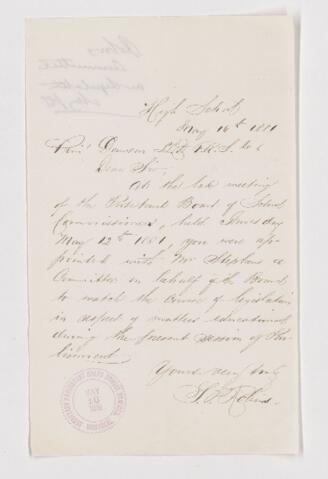 High School
May 16th 1881
Prin. Dawson LL.D. F.R.S. &c
Dear Sir,
At the last meeting
of the Protestant Board of School
Commissioners, held Thursday
May 12th 1881, you were ap-
pointed with Mr Stephens a
Committee on behalf of the Board
to watch the course of legislation
in respect of matters educational
during the present session of Par-
liament.
Yours very truly
MAY